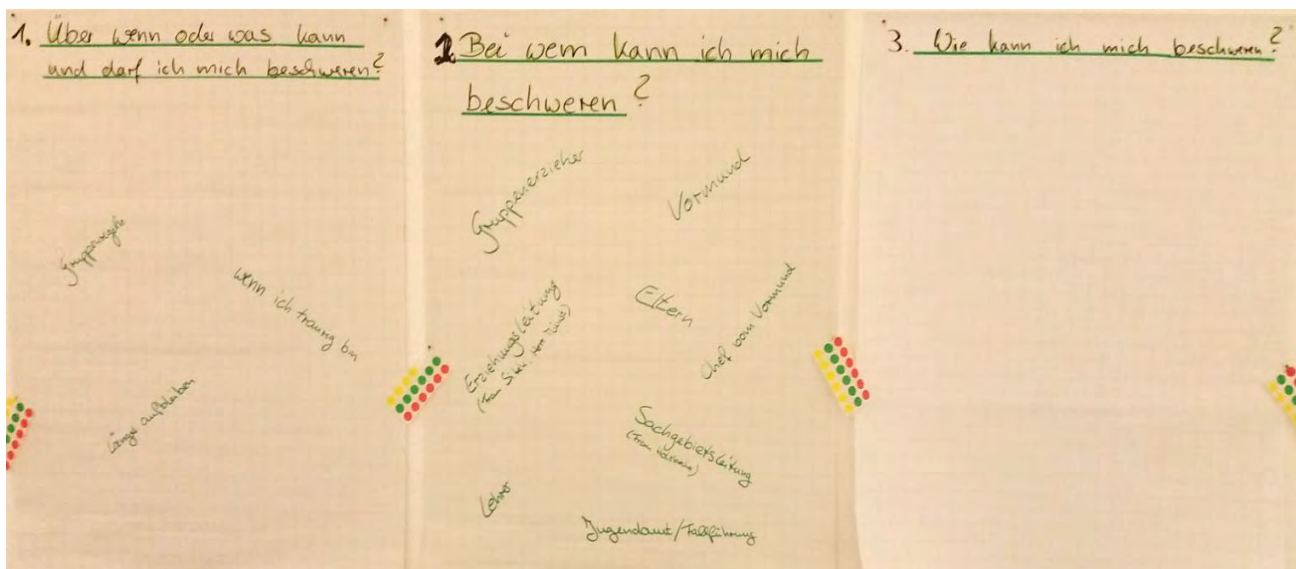 1. Über wenn oder was kann
und darf ich mich beschweren?
Gruppenregeln
wenn ich traurig bin
länger aufbleiben
2. Bei wem kann ich mich
beschweren?
Gruppenerzieher
Vormund
Erziehungsleitung
Eltern
Chef vom Vormund
Sachgebietsleitung
Lehrer
Jugendamt/Fallführung
3. Wie kann ich mich beschweren?